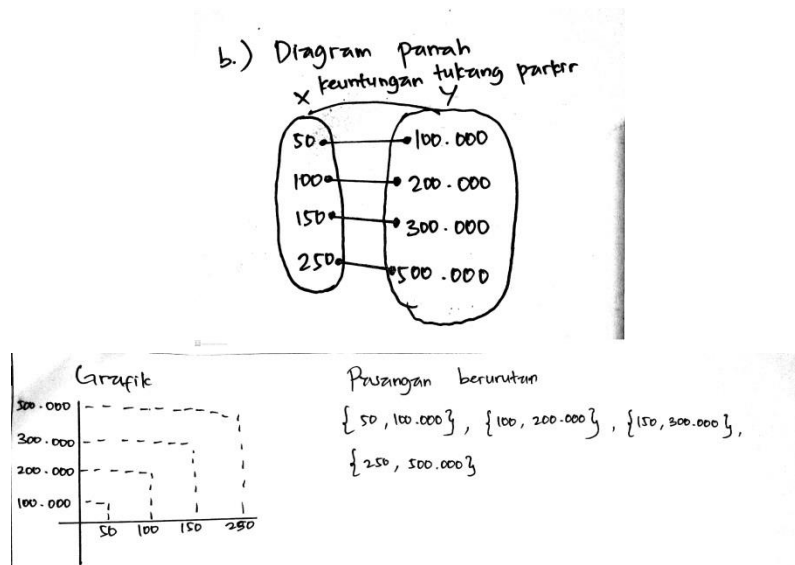 b.) Diagram panah
keuntungan tukang parkir
X Y
50 100.000
100 200.000
150 300.000
250 500.000
Grafik
500.000
300.000
200.000
100.000
50 100 150 250
Pasangan berurutan
{50, 100.000}, {100, 200.000}, {150, 300.000},
{250, 500.000}